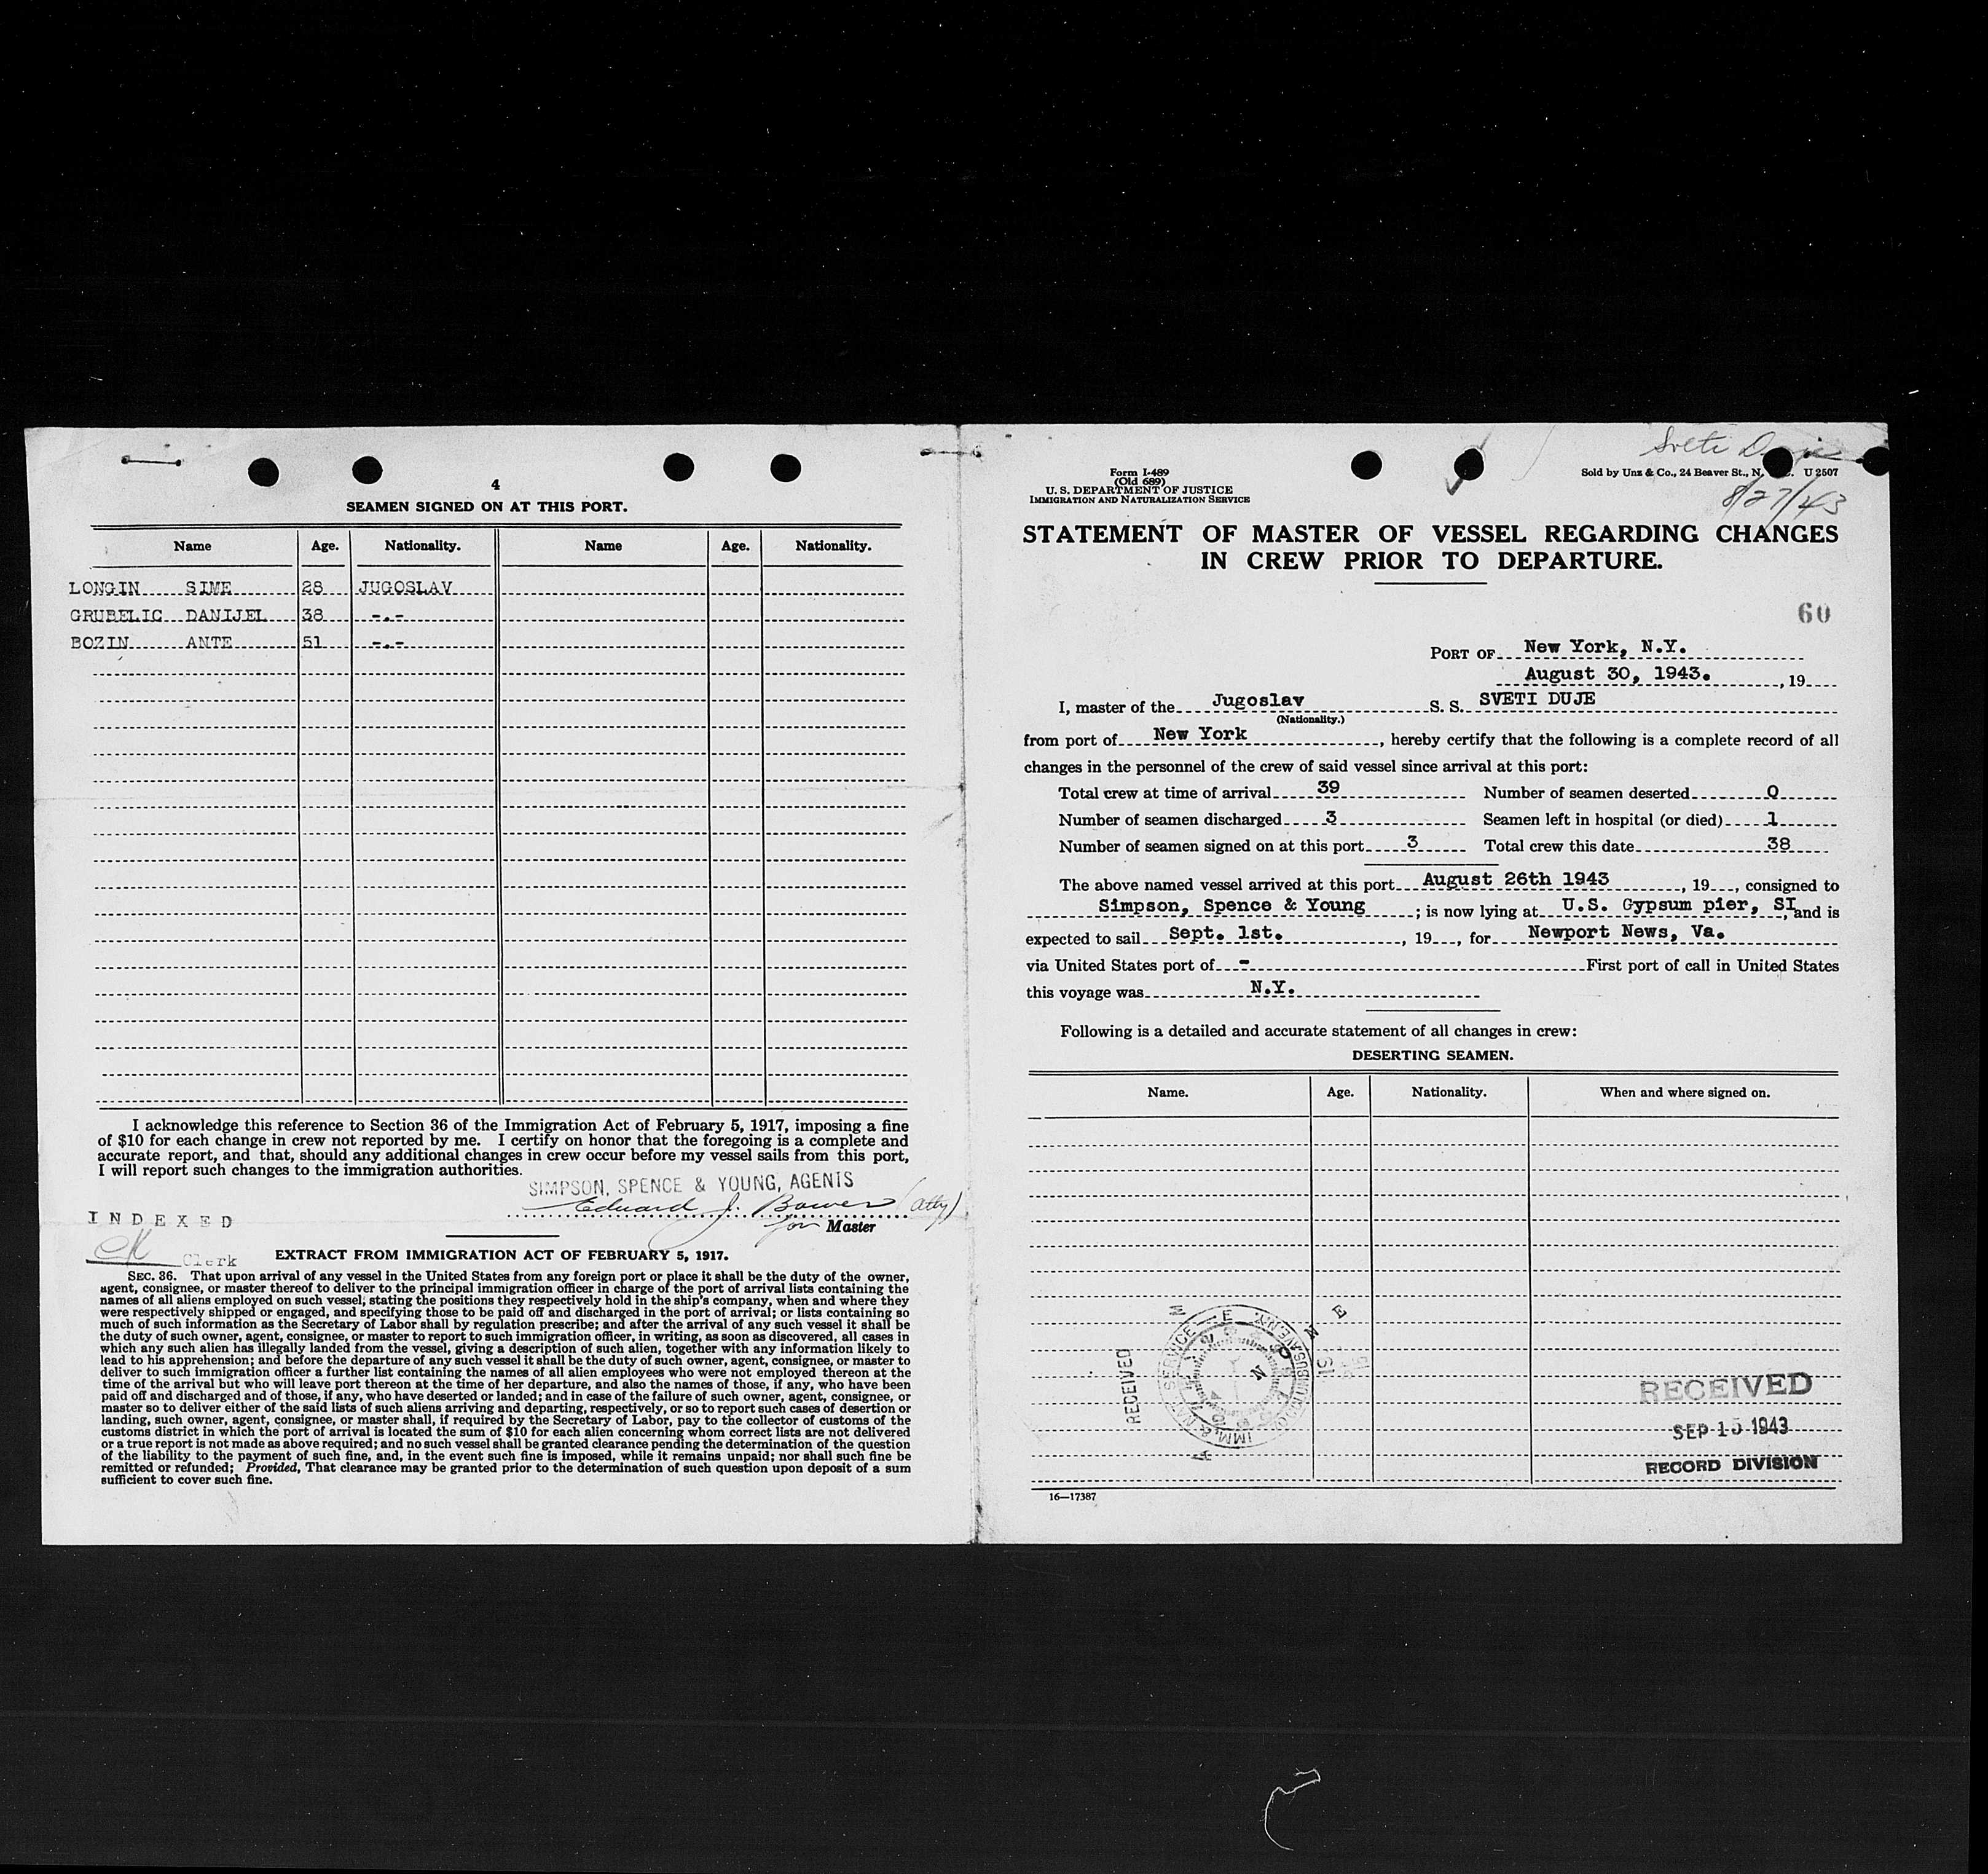 4
SEAMEN SIGNED ON AT THIS PORT.
Name Age. Nationality. Name Age. Nationality.
LONGIN SIME 28 JUGOSLAV
GRUBELIC DANIJEL 38 -.-
BOZIN ANTE 51 -.-
I acknowledge this reference to Section 36 of the Immigration Act of February 5, 1917, imposing a fine
of $10 for each change in crew not reported by me. I certify on honor that the foregoing is a complete and
accurate report, and that, should any additional changes in crew occur before my vessel sails from this port,
I will report such changes to the immigration authorities.
SIMPSON, SPENCE & YOUNG, AGENTS
Eduard J. Bower (atty)
for Master
INDEXED
CK Clerk
EXTRACT FROM IMMIGRATION ACT OF FEBRUARY 5, 1917.
SEC. 36. That upon arrival of any vessel in the United States from any foreign port or place it shall be the duty of the owner,
agent, consignee, or master thereof to deliver to the principal immigration officer in charge of the port of arrival lists containing the
names of all aliens employed on such vessel, stating the positions they respectively hold in the ship's company, when and where they
were respectively shipped or engaged, and specifying those to be paid off and discharged in the port of arrival; or lists containing so
much of such information as the Secretary of Labor shall by regulation prescribe; and after the arrival of any such vessel it shall be
the duty of such owner, agent, consignee, or master to report to such immigration officer, in writing, as soon as discovered, all cases in
which any such alien has illegally landed from the vessel, giving a description of such alien, together with any information likely to
lead to his apprehension; and before the departure of any such vessel it shall be the duty of such owner, agent, consignee, or master to
deliver to such immigration officer a further list containing the names of all alien employees who were not employed thereon at the
time of the arrival but who will leave port thereon at the time of her departure, and also the names of those, if any, who have been
paid off and discharged and of those, if any, who have deserted or landed; and in case of the failure of such owner, agent, consignee, or
master so to deliver either of the said lists of such aliens arriving and departing, respectively, or so to report such cases of desertion or
landing, such owner, agent, consignee, or master shall, if required by the Secretary of Labor, pay to the collector of customs of the
customs district in which the port of arrival is located the sum of $10 for each alien concerning whom correct lists are not delivered
or a true report is not made as above required; and no such vessel shall be granted clearance pending the determination of the question
of the liability to the payment of such fine, and, in the event such fine is imposed, while it remains unpaid; nor shall such fine be
remitted or refunded; Provided, That clearance may be granted prior to the determination of such question upon deposit of a sum
sufficient to cover such fine.
Sveti Duje
8/27/43
Form I-489
(Old 689)
U. S. DEPARTMENT OF JUSTICE
IMMIGRATION AND NATURALIZATION SERVICE
Sold by Unz & Co., 24 Beaver St., N. U 2507
STATEMENT OF MASTER OF VESSEL REGARDING CHANGES
IN CREW PRIOR TO DEPARTURE.
60
PORT OF New York, N.Y.
August 30, 1943. , 19
I, master of the Jugoslav S. S. SVETI DUJE
(Nationality.)
from port of New York , hereby certify that the following is a complete record of all
changes in the personnel of the crew of said vessel since arrival at this port:
Total crew at time of arrival 39 Number of seamen deserted 0
Number of seamen discharged 3 Seamen left in hospital (or died) 1
Number of seamen signed on at this port 3 Total crew this date 38
The above named vessel arrived at this port August 26th 1943 , 19 , consigned to
Simpson, Spence & Young ; is now lying at U.S. Gypsum pier, SI, and is
expected to sail Sept. 1st. , 19 , for Newport News, Va.
via United States port of - First port of call in United States
this voyage was N.Y.
Following is a detailed and accurate statement of all changes in crew:
DESERTING SEAMEN.
Name. Age. Nationality. When and where signed on.
RECEIVED
RECEIVED
SEP 15 1943
RECORD DIVISION
16—17387